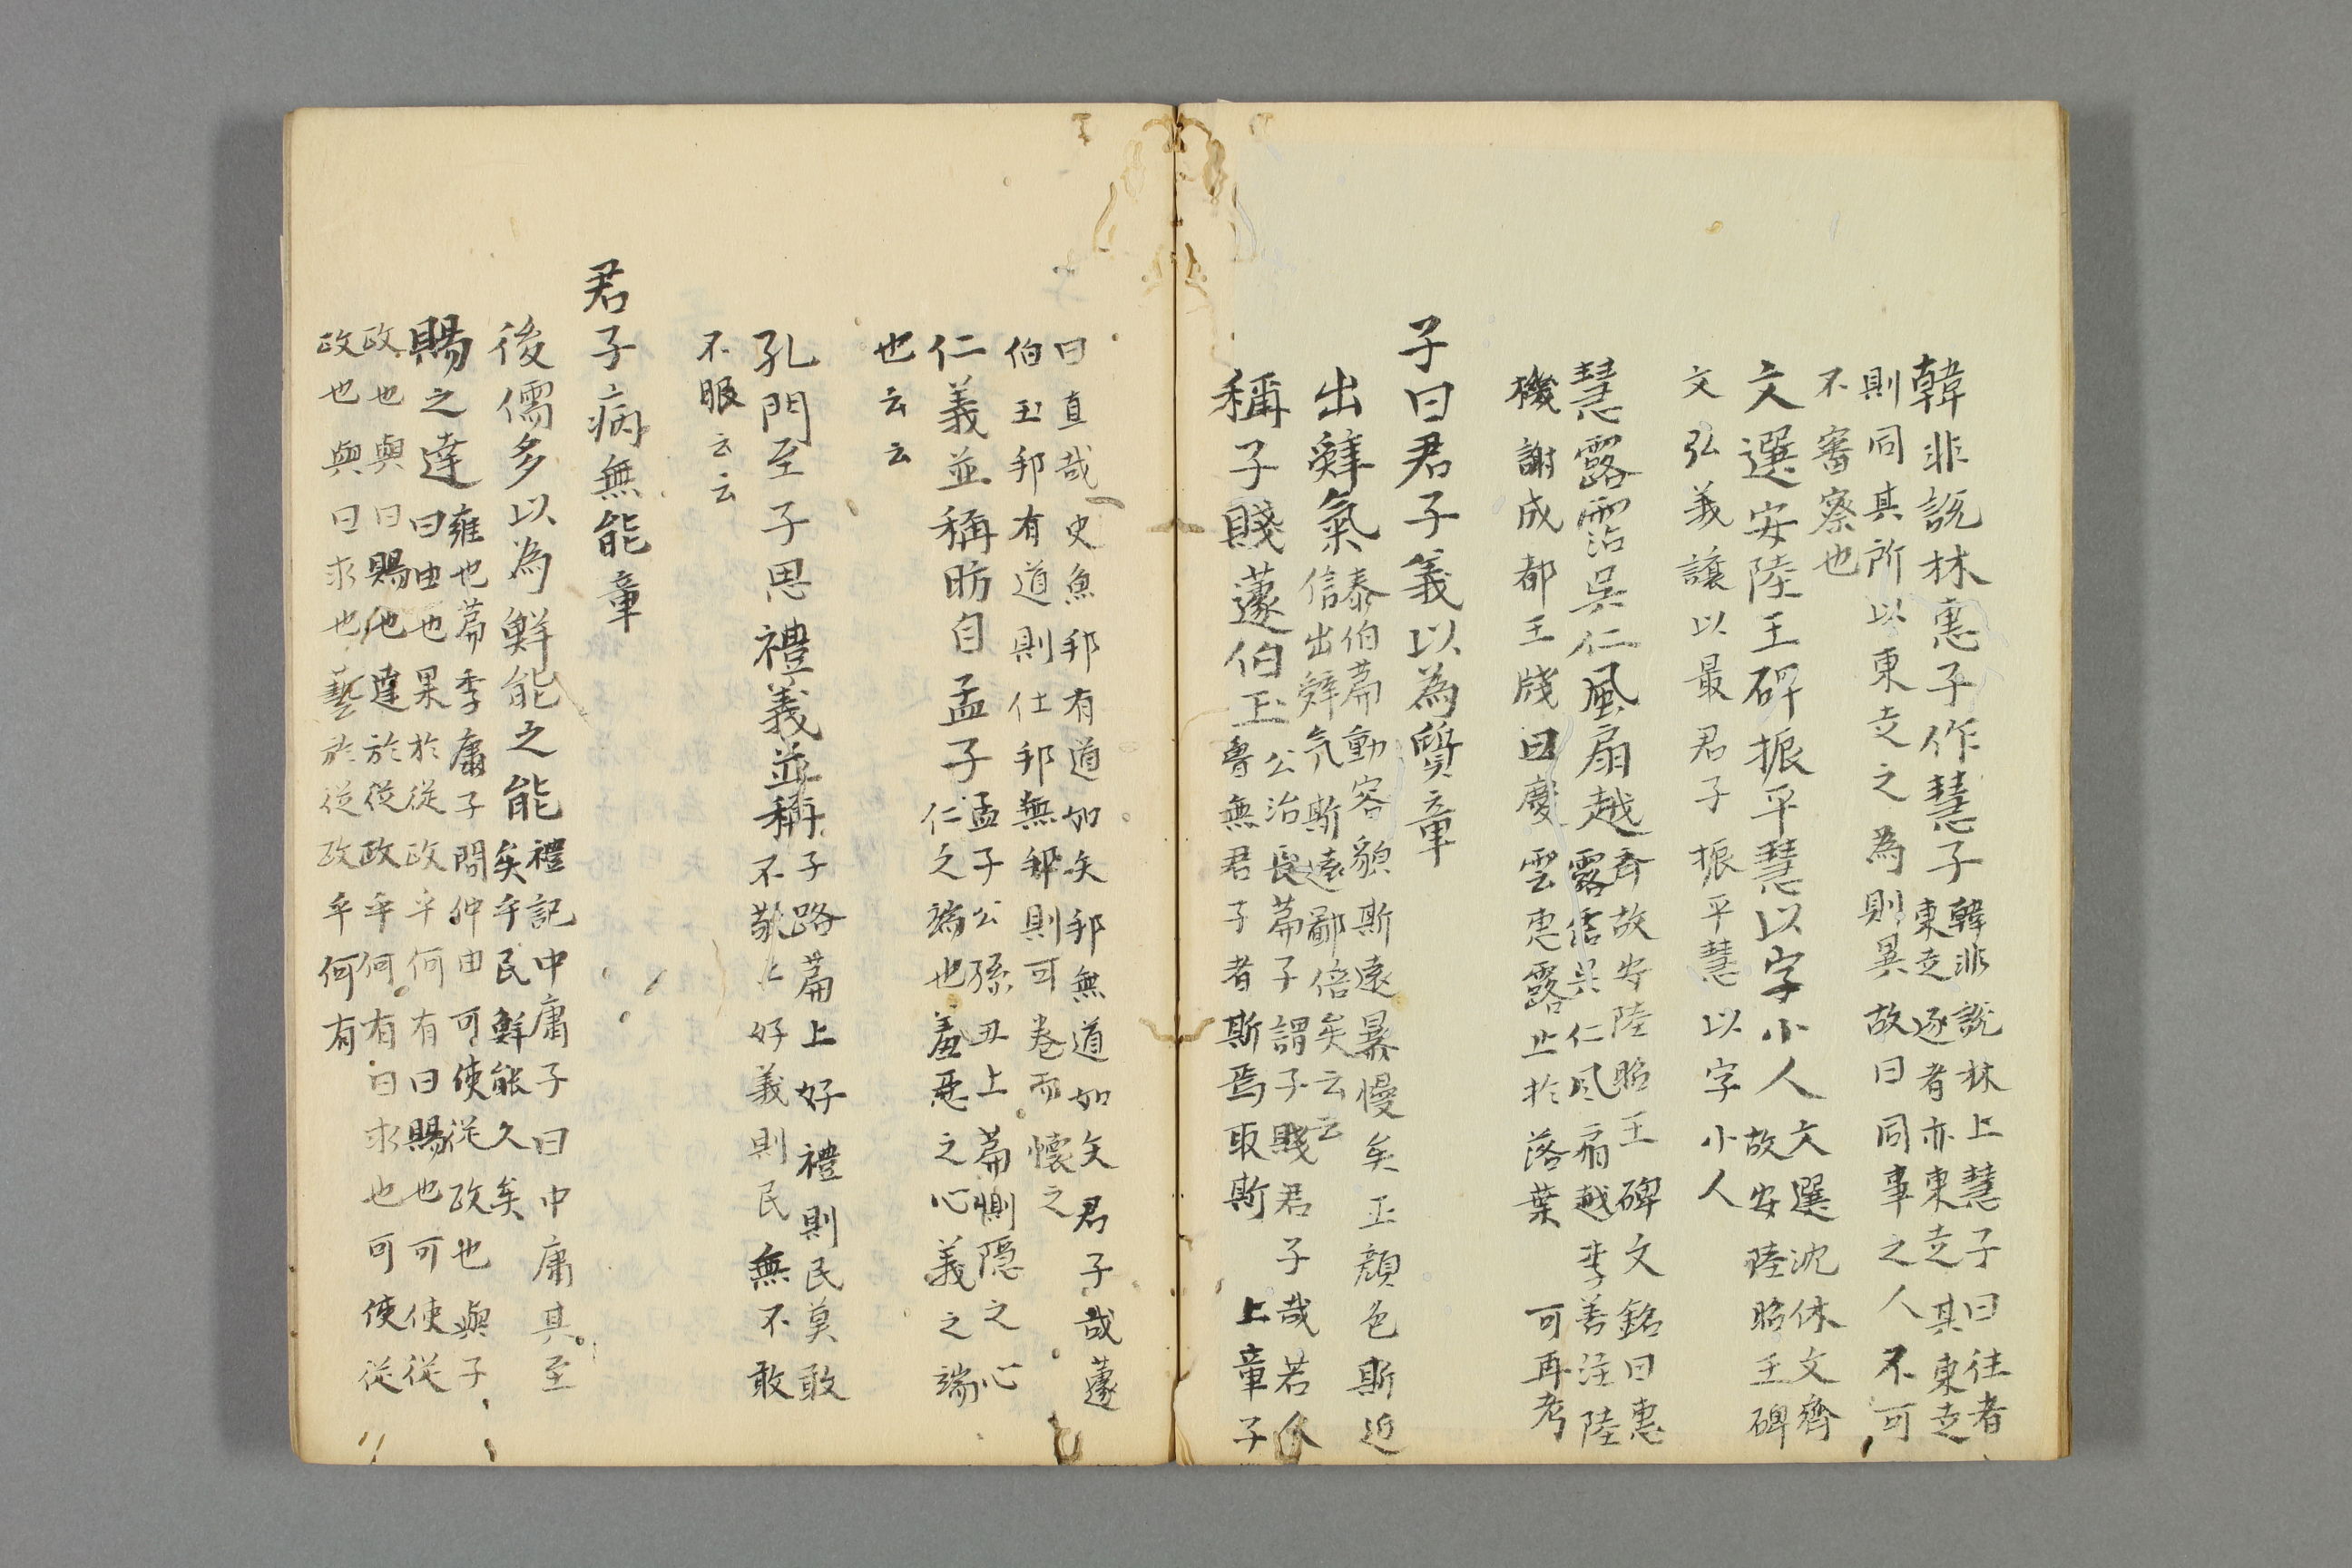 韓非說林惠子作慧子韓非說林上慧子曰往者
東走逐者亦東走其東走
則同其所以東走之為則異故曰同事之人不可
不審察也
文選安陸王碑振平慧以字小人文選沈休文齊
故安陸昭王碑
文弘義讓以最君子振平慧以字小人
慧露霑吳仁風扇越齊故安陸昭王碑文銘曰惠
露霑吳仁风扇越李善注陸
機謝成都王牋曰慶雲惠露止於落葉 可再考
子曰君子義以為質章
出辭氣泰伯篇動容貌斯遠暴慢矣正顏色斯近
信出辭気斯遠鄙倍矣云云
稱子賤蘧伯玉公治長篇子謂子賤君子哉若人
魯無君子者斯焉取斯 上章子
曰直哉史魚邦有道如矢邦無道如矢君子哉蘧
伯玉邦有道則仕邦無邦則可卷而懷之
仁義並稱昉自孟子孟子公孫丑上篇惻隠之心
仁之端也羞悪之心義之端
也云云
孔門至子思禮義並稱子路篇上好禮則民莫敢
不敬上好義則民無不敢
不服云云
君子病無能章
後儒多以為鮮能之能禮記中庸子曰中庸其至
矣乎民鮮能久矣
賜之達雍也篇季康子問仲由可使從政也與子
曰由也果於從政乎何有曰賜也可使從
政也與曰賜也達於從政乎何有曰求也可使從
政也與曰求也藝於從政乎何有